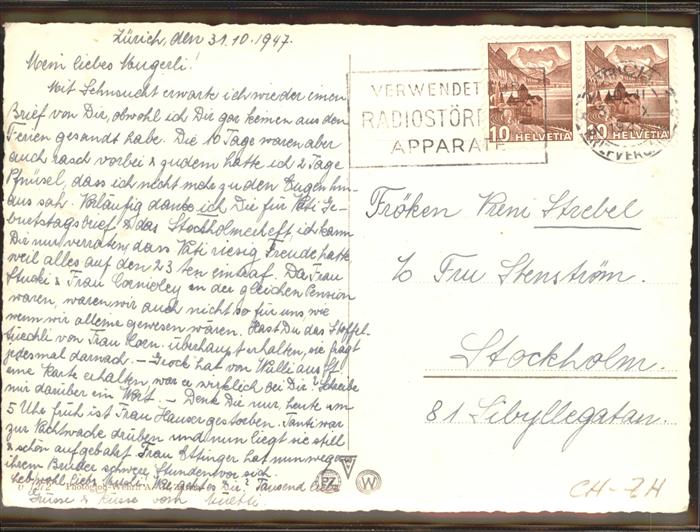 Zürich, den 31.10.1947.
Mein liebes Vrugerli!
Mit Sehnsucht erwarte ich wieder einen
Brief von Dir, obwohl ich Dir gar keinen aus den
Ferien gesandt habe. Die 10 Tage waren aber
auch rasch vorbei & zudem hatte ich 2 Tage
Pfnüsel, dass ich nicht mehr zu den Augen hin-
aus sah. Vorläufig danke ich Dir für Väti Ge-
burtstagsbrief & das Stockholmerheft, ich kann
Dir nur verraten, dass Väti riesig Freude hatte
weil alles auf den 23 ten eintraf. Da Frau
Stucki & Frau Cornioley in der gleichen Pension
waren, waren wir auch nicht so für uns wie
wenn wir alleine gewesen wären. Hast Du das
tüechli von Frau Koen. überhaupt erhalten, sie frägt
jedesmal darnach. – hat von Wulli aus
eine Karte erhalten, war er wirklich bei Dir? Schreibe
mir darüber ein Wort. – Denk Dir nur, heute um
5 Uhr früh ist Frau Hauser gestorben. Tanti war
zur Nachtwache drüben und nun liegt sie still
& schön aufgebahrt. Frau Ettinger hat nun wegen
ihrem Bruder schwere Stunden vor sich.
Leb wohl, liebs Wie geht es Dir? Tausend liebe
Grüsse & Küsse vom Müetti.
VERWENDET
RADIOSTÖR
APPARATE
10 HELVETIA
10 HELVETIA
BRIEFVERSAND
Fröken Vreni Strebel
c/o Fru Stenström.
Stockholm.
81 Sibyllegatan.
PZ
W
CH-ZH